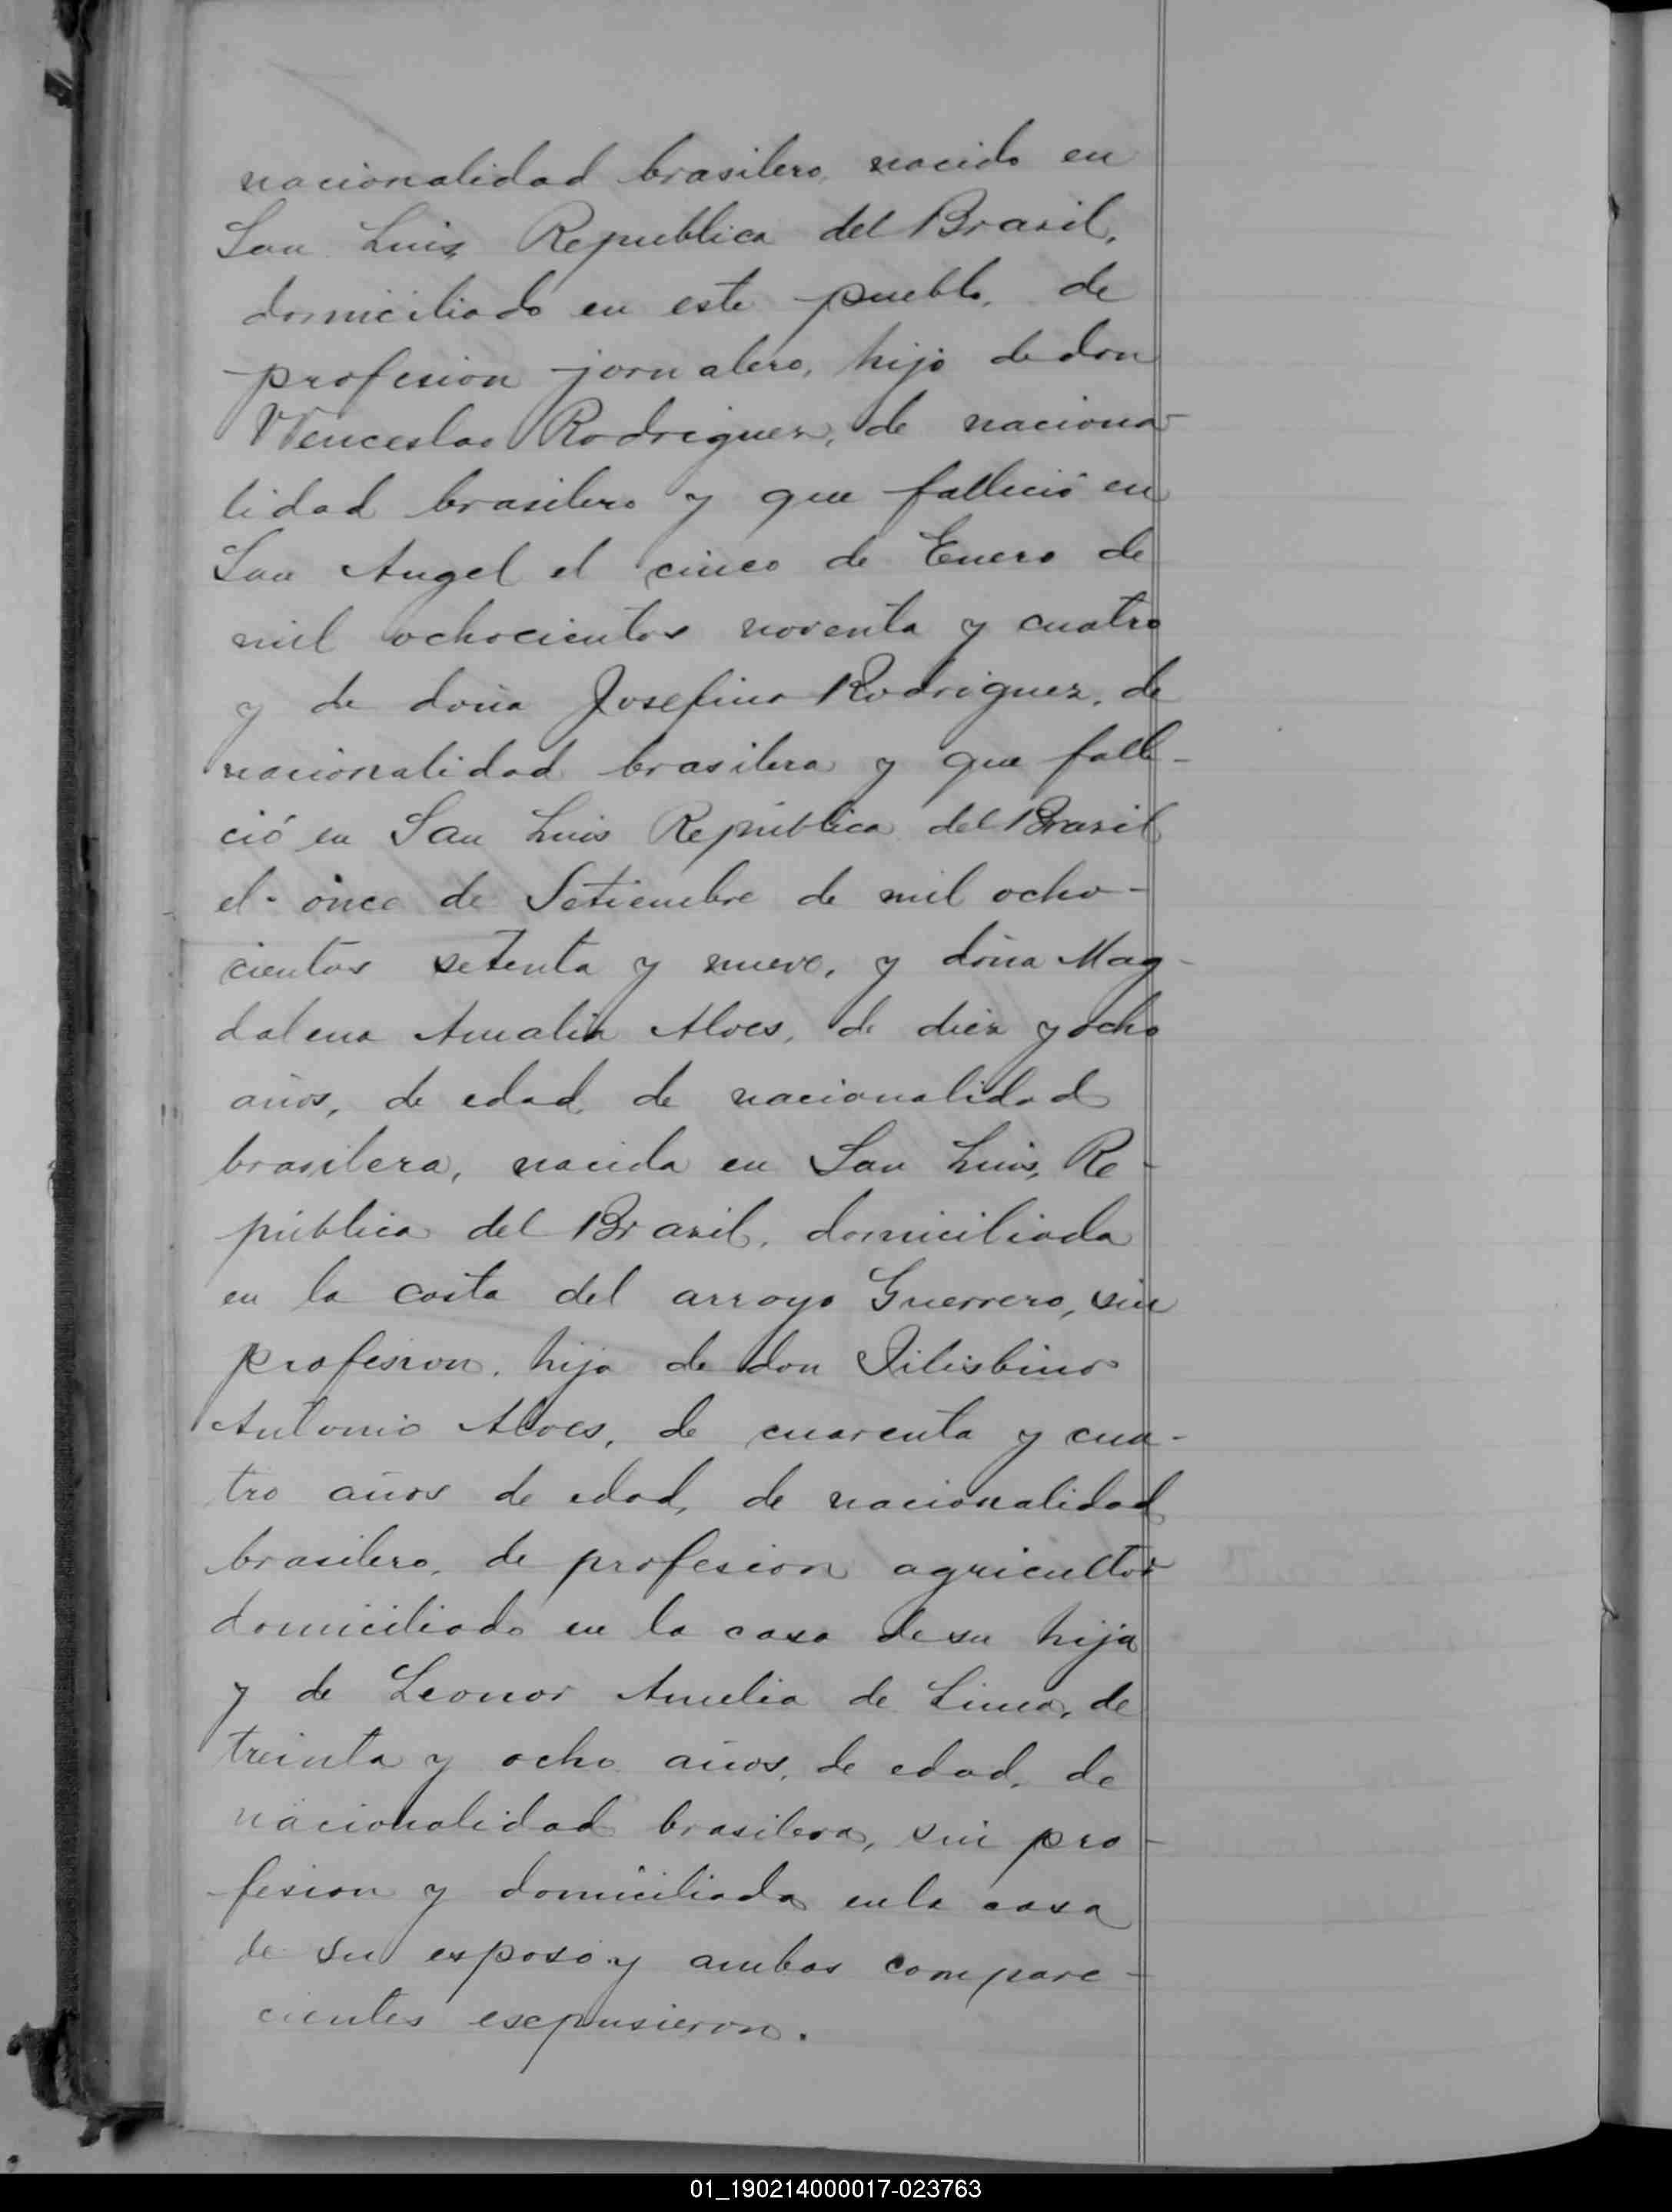 nacionalidad brasilero, nacido en
San Luis, Republica del Brasil,
domiciliado en este pueblo, de
profesion jornalero, hijo de don
Wenceslao Rodriguez, de naciona-
lidad brasilero y que falleció en
San Angel el cinco de Enero de
mil ochocientos noventa y cuatro
y de doña Josefina Rodriguez, de
nacionalidad brasilera y que falle-
ció en San Luis República del Brasil
el once de Setiembre de mil ocho-
cientos setenta y nueve, y doña Mag-
dalena Amalia Alves, de diez y ocho
años, de edad, de nacionalidad
brasilera, nacida en San Luis, Re-
pública del Brasil, domiciliada
en la costa del arroyo Guerrero, sin
profesion, hija de don
Antonio Alves, de cuarenta y cua-
tro años de edad, de nacionalidad
brasilero, de profesion agricultor
domiciliado en la casa de su hija
y de Leonor Amelia de Lima, de
treinta y ocho años, de edad, de
nacionalidad brasilera, sin pro-
fesion y domiciliada en la casa
de su esposo y ambos compare-
cientes escpusieron.
01_190214000017-023763